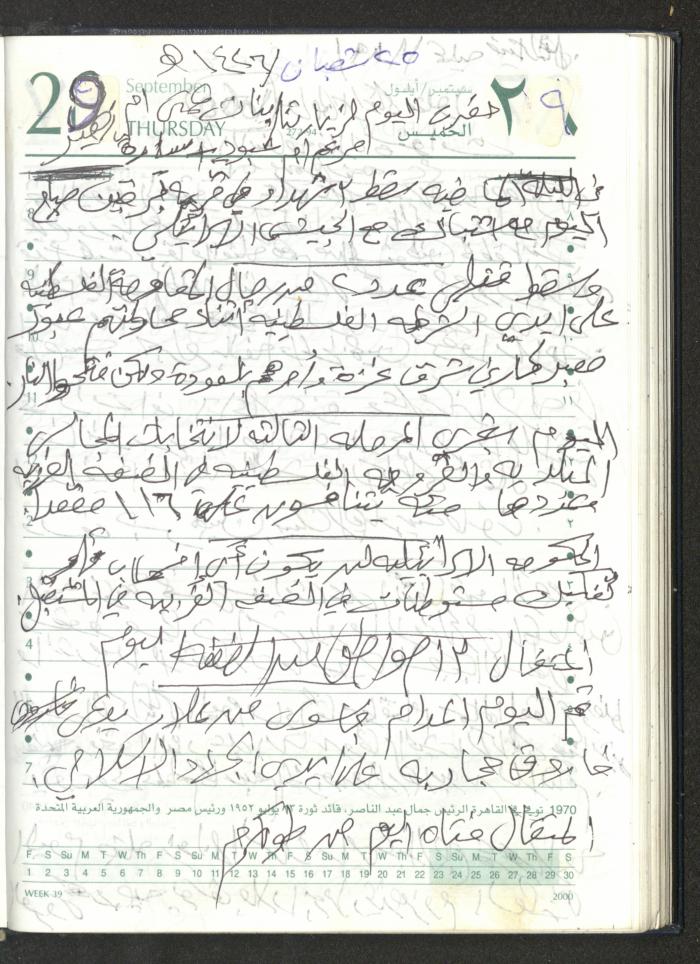 ٢٥ شعبان /١٤٢٦ هـ
29 September سبتمبر/أيلول ٢٩
THURSDAY 273-94 الخميس
حضرت اليوم لزيارتنا بنات عمي أم
مريم أم عبود
في الليلة الماضيه سقط ٢ شهداء في قرية برقين صباح
اليوم من اشتباك مع الجيش الاسرائيلي .
وسقط قتلى عدد من رجال المقاومة الفلسطينيه
على ايدي الشرطه الفلسطينيه اثناء محاولتهم عبور
معبر كارني شرق غزة بالعودة ولكن فتحوا النار.
اليوم تجري المرحله الثالثه لانتخابات المجالس
البلديه والقرويه الفلسطينيه في الضفه الغربيه
وعددها مئة يتنافسون على ١١٦ مقعدا.
الحكومه الاسرائيليه لن يكون أي انسحاب أو
تفكيك مستوطنات في الضفه الغربيه في المستقبل.
اعتقال ١٣ مواطن من الضفه اليوم
تم اليوم اعدام جاسوس من
على ايدي الجهاد الاسلامي.
1970 توفي في القاهرة الرئيس جمال عبد الناصر، قائد ثورة ٢٣ يوليو ١٩٥٢ ورئيس مصر والجمهورية العربية المتحدة
اعتقال فتاه اليوم من طولكرم
F S Su M T W Th F S Su M T W Th F S Su M T W Th F S Su M T W Th F S
1 2 3 4 5 6 7 8 9 10 11 12 13 14 15 16 17 18 19 20 21 22 23 24 25 26 27 28 29 30
WEEK 39 2000